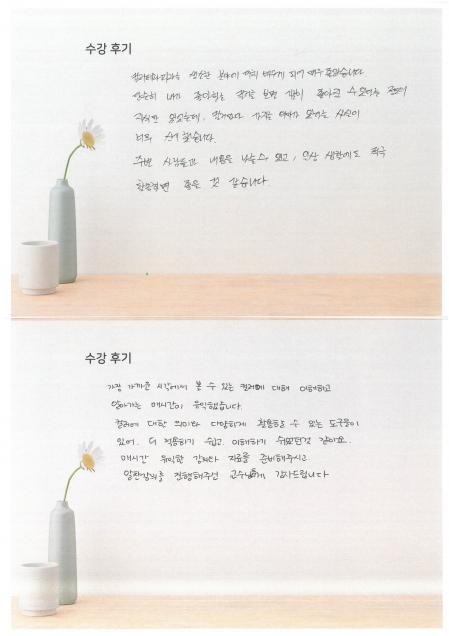 수강 후기
컬러테라피라는 생소한 분야에 대해 배우게 되어 매우 좋았습니다.
단순히 내가 좋아하는 색깔을 보면 기분이 좋아질 수 있다는
있었는데, 컬러마다 가지는 의미가 있다는 사실이
너무 신기했습니다.
주변 사람들과 내용을 나눌 수 있고, 일상 생활에도 적극
활용하면 좋을 것 같습니다.
수강 후기
가장 가까운 시각에서 볼 수 있는 컬러에 대해 이해하고
알아가는 매시간이 유익했습니다.
컬러에 대한 의미와 다양하게 활용할 수 있는 도구들이
있어, 더 적용하기 쉽고 이해하기 쉬웠던것 같아요.
매시간 유익한 강의와 자료를 준비해주시고
알찬강의를 진행해주신 교수님께 감사드립니다